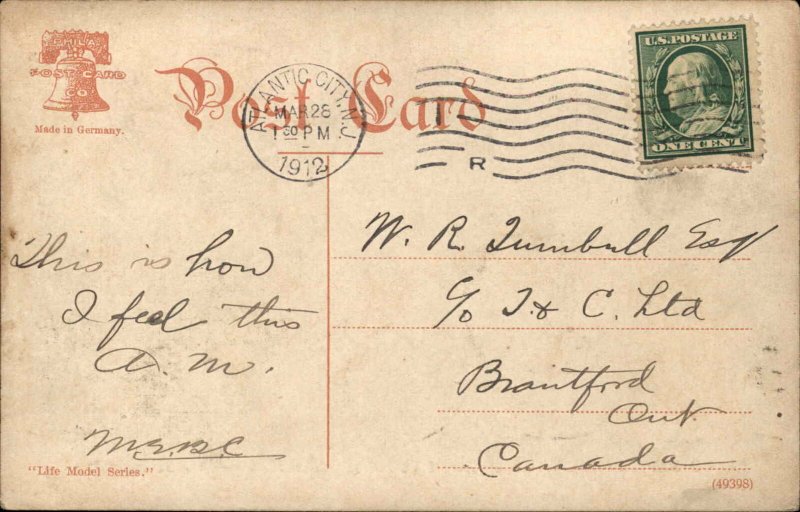 PHILA
POST CARD
CO.
Made in Germany.
Post Card
ATLANTIC CITY, N.J.
MAR 28
1 30 PM
1912
R
U.S. POSTAGE
ONE CENT
This is how
I feel this
A.M.
"Life Model Series."
W. R. Turnbull Esq
c/o T. & C. Ltd
Brantford
Ont.
Canada
(49398)